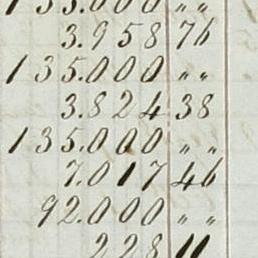 135.000 " "
3.958 76
135.000 " "
3.824 38
135.000 " "
7.017 46
92.000 " "
228 11